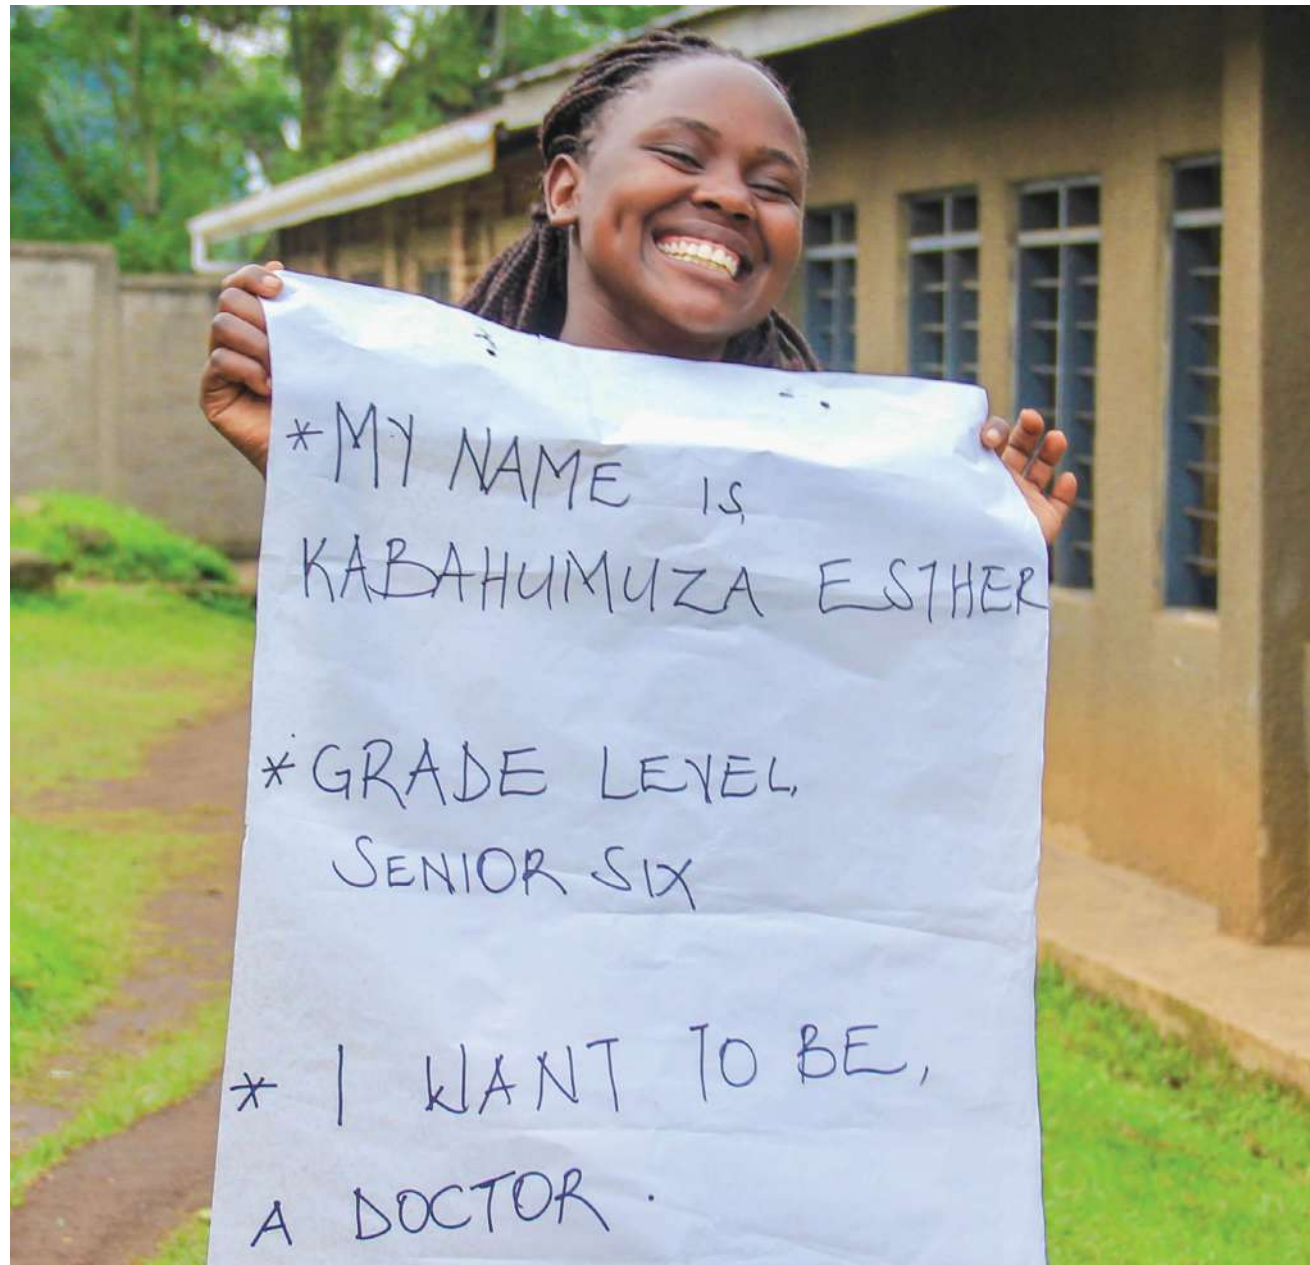 * MY NAME IS
KABAHUMUZA ESTHER
* GRADE LEVEL,
SENIOR SIX
* I WANT TO BE,
A DOCTOR.